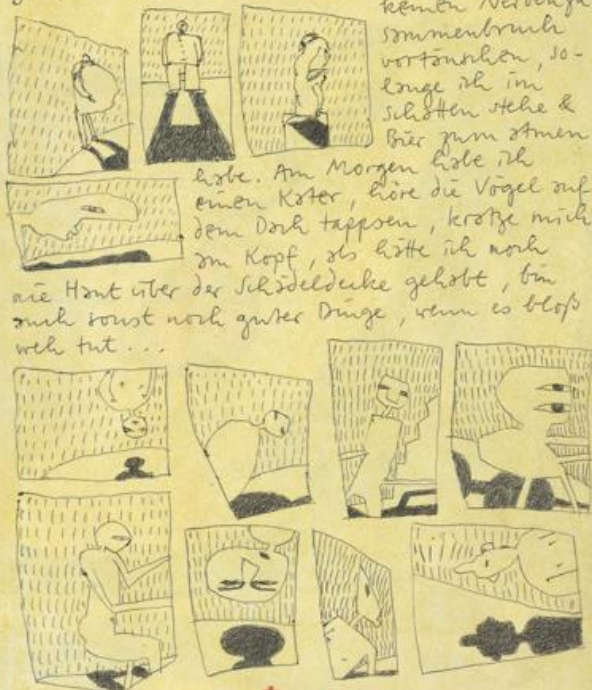 keinen Nervenzu
sammenbruch
vortäuschen, so-
lange ich im
Schatten stehe &
Bier zum atmen
habe. Am Morgen habe ich
einen Kater, höre die Vögel auf
dem Dach tappsen, kratze mich
am Kopf, als hätte ich noch
nie Haut über der Schädeldecke gehabt, bin
auch sonst noch guter Dinge, wenn es bloß
weh tut...